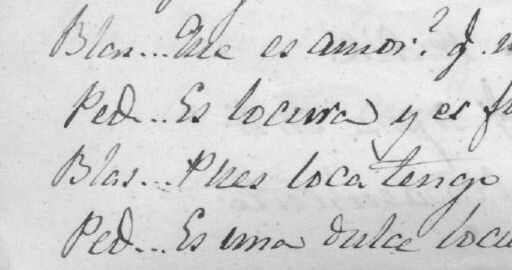 Blas... Que es amor?
Ped... Es locura y es
Blas... Pues loca tengo
Ped... Es una dulce locu